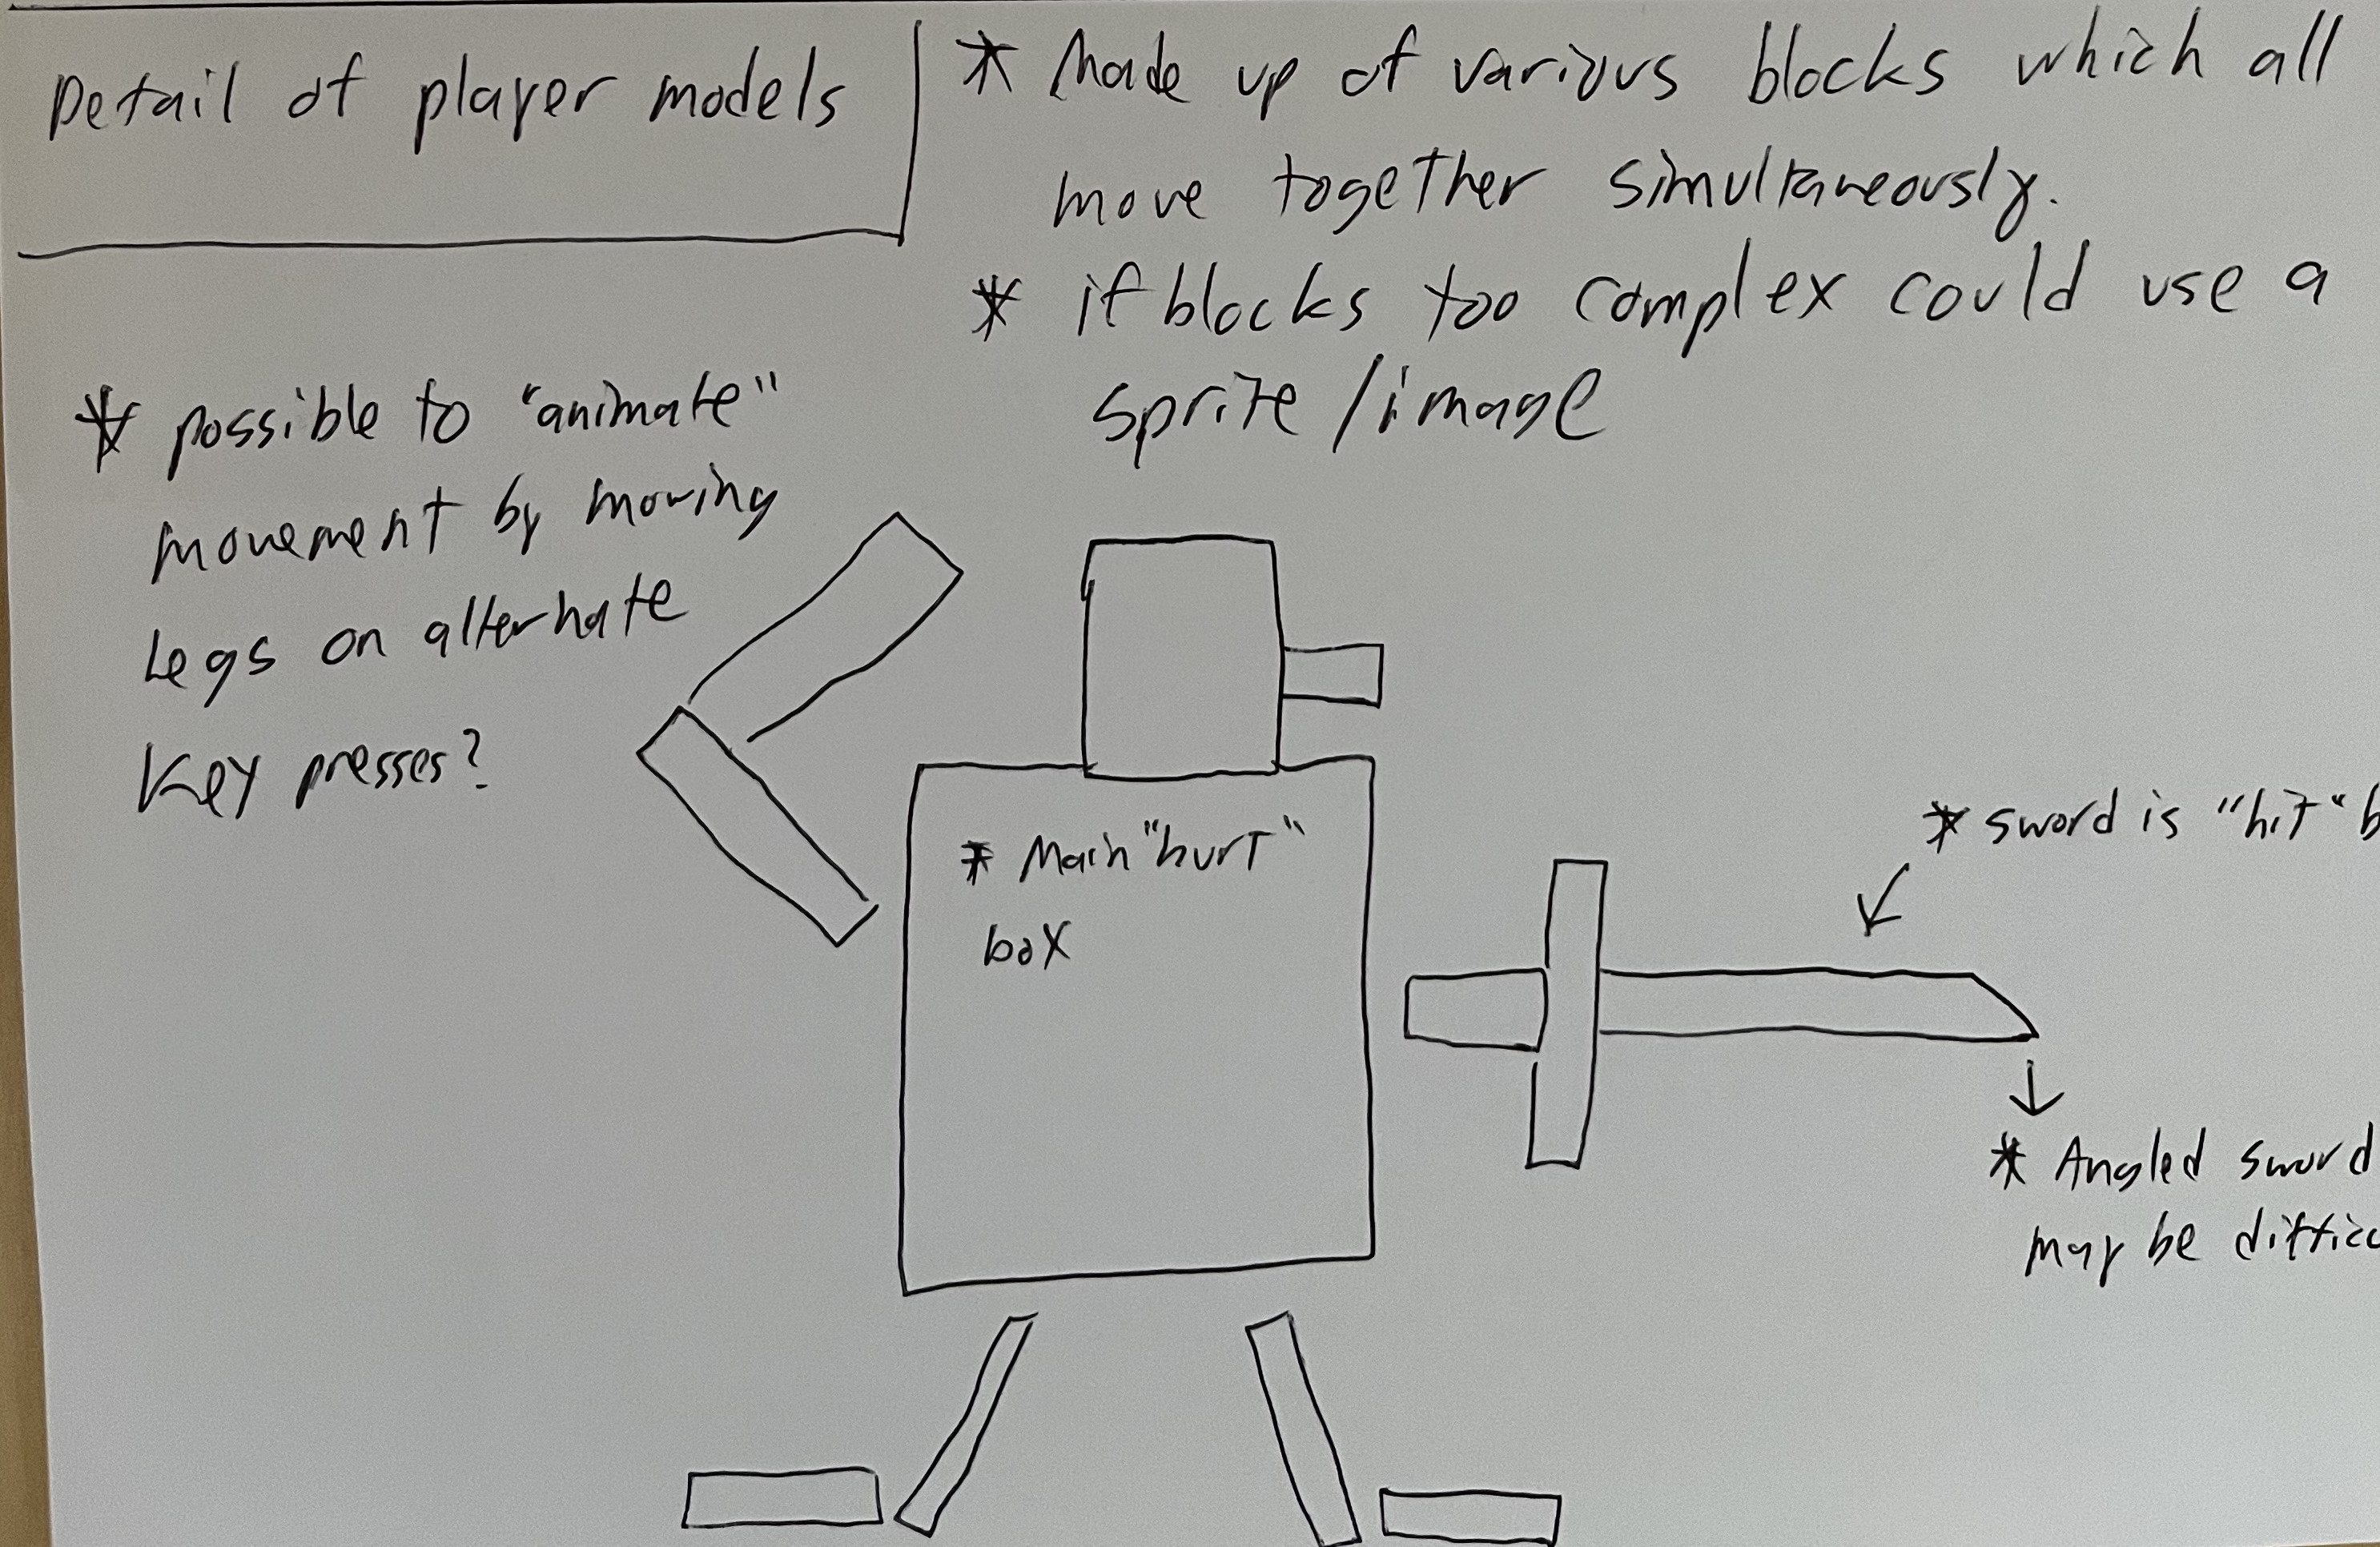 Detail of player models
* Made up of various blocks which all
move together simultaneously.
* if blocks too complex could use a
sprite/image
* possible to "animate"
movement by moving
legs on alternate
key presses?
* Main "hurt"
box
* sword is "hit" b
* Angled sword
may be difficu